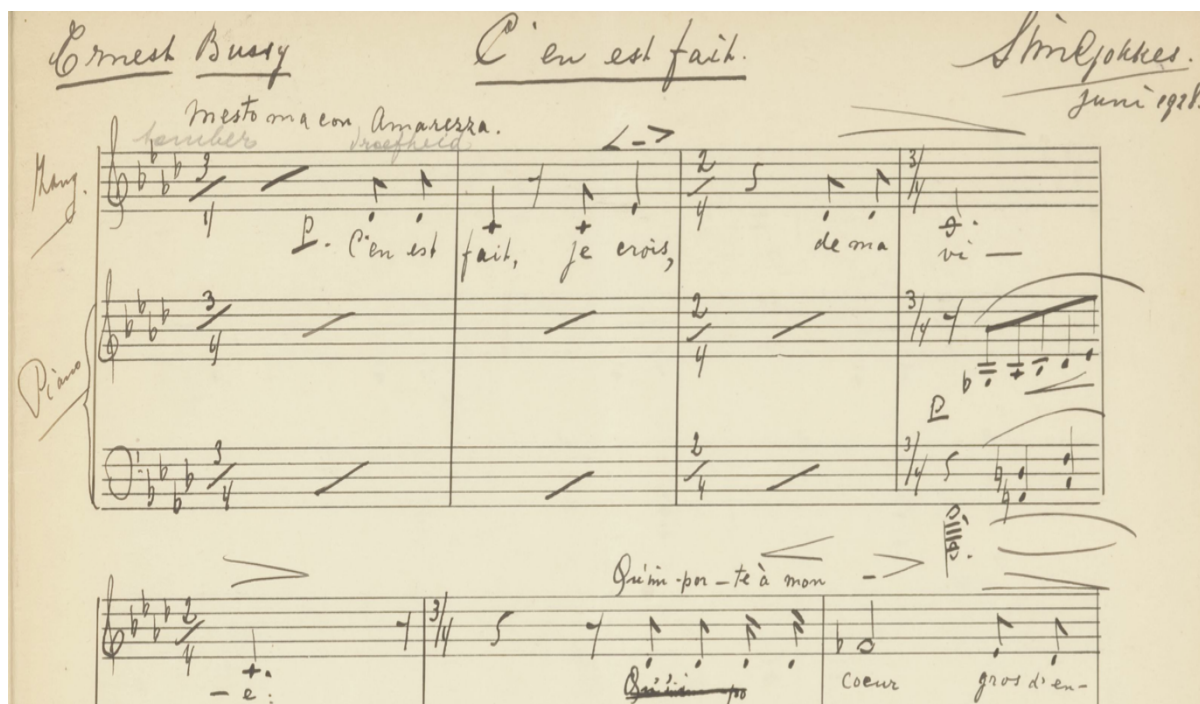 Ernest Bussy C'en est fait.
juni 1928.
Mesto ma con Amarezza.
somber droefheid
Zang.
3/4 2/4 3/4
P. C'en est fait, je crois, de ma vi —
Piano
3/4 2/4 3/4
P
3/4 2/4 3/4
Qu'im-por-te à mon
2/4 3/4
— e: coeur gros d'en-